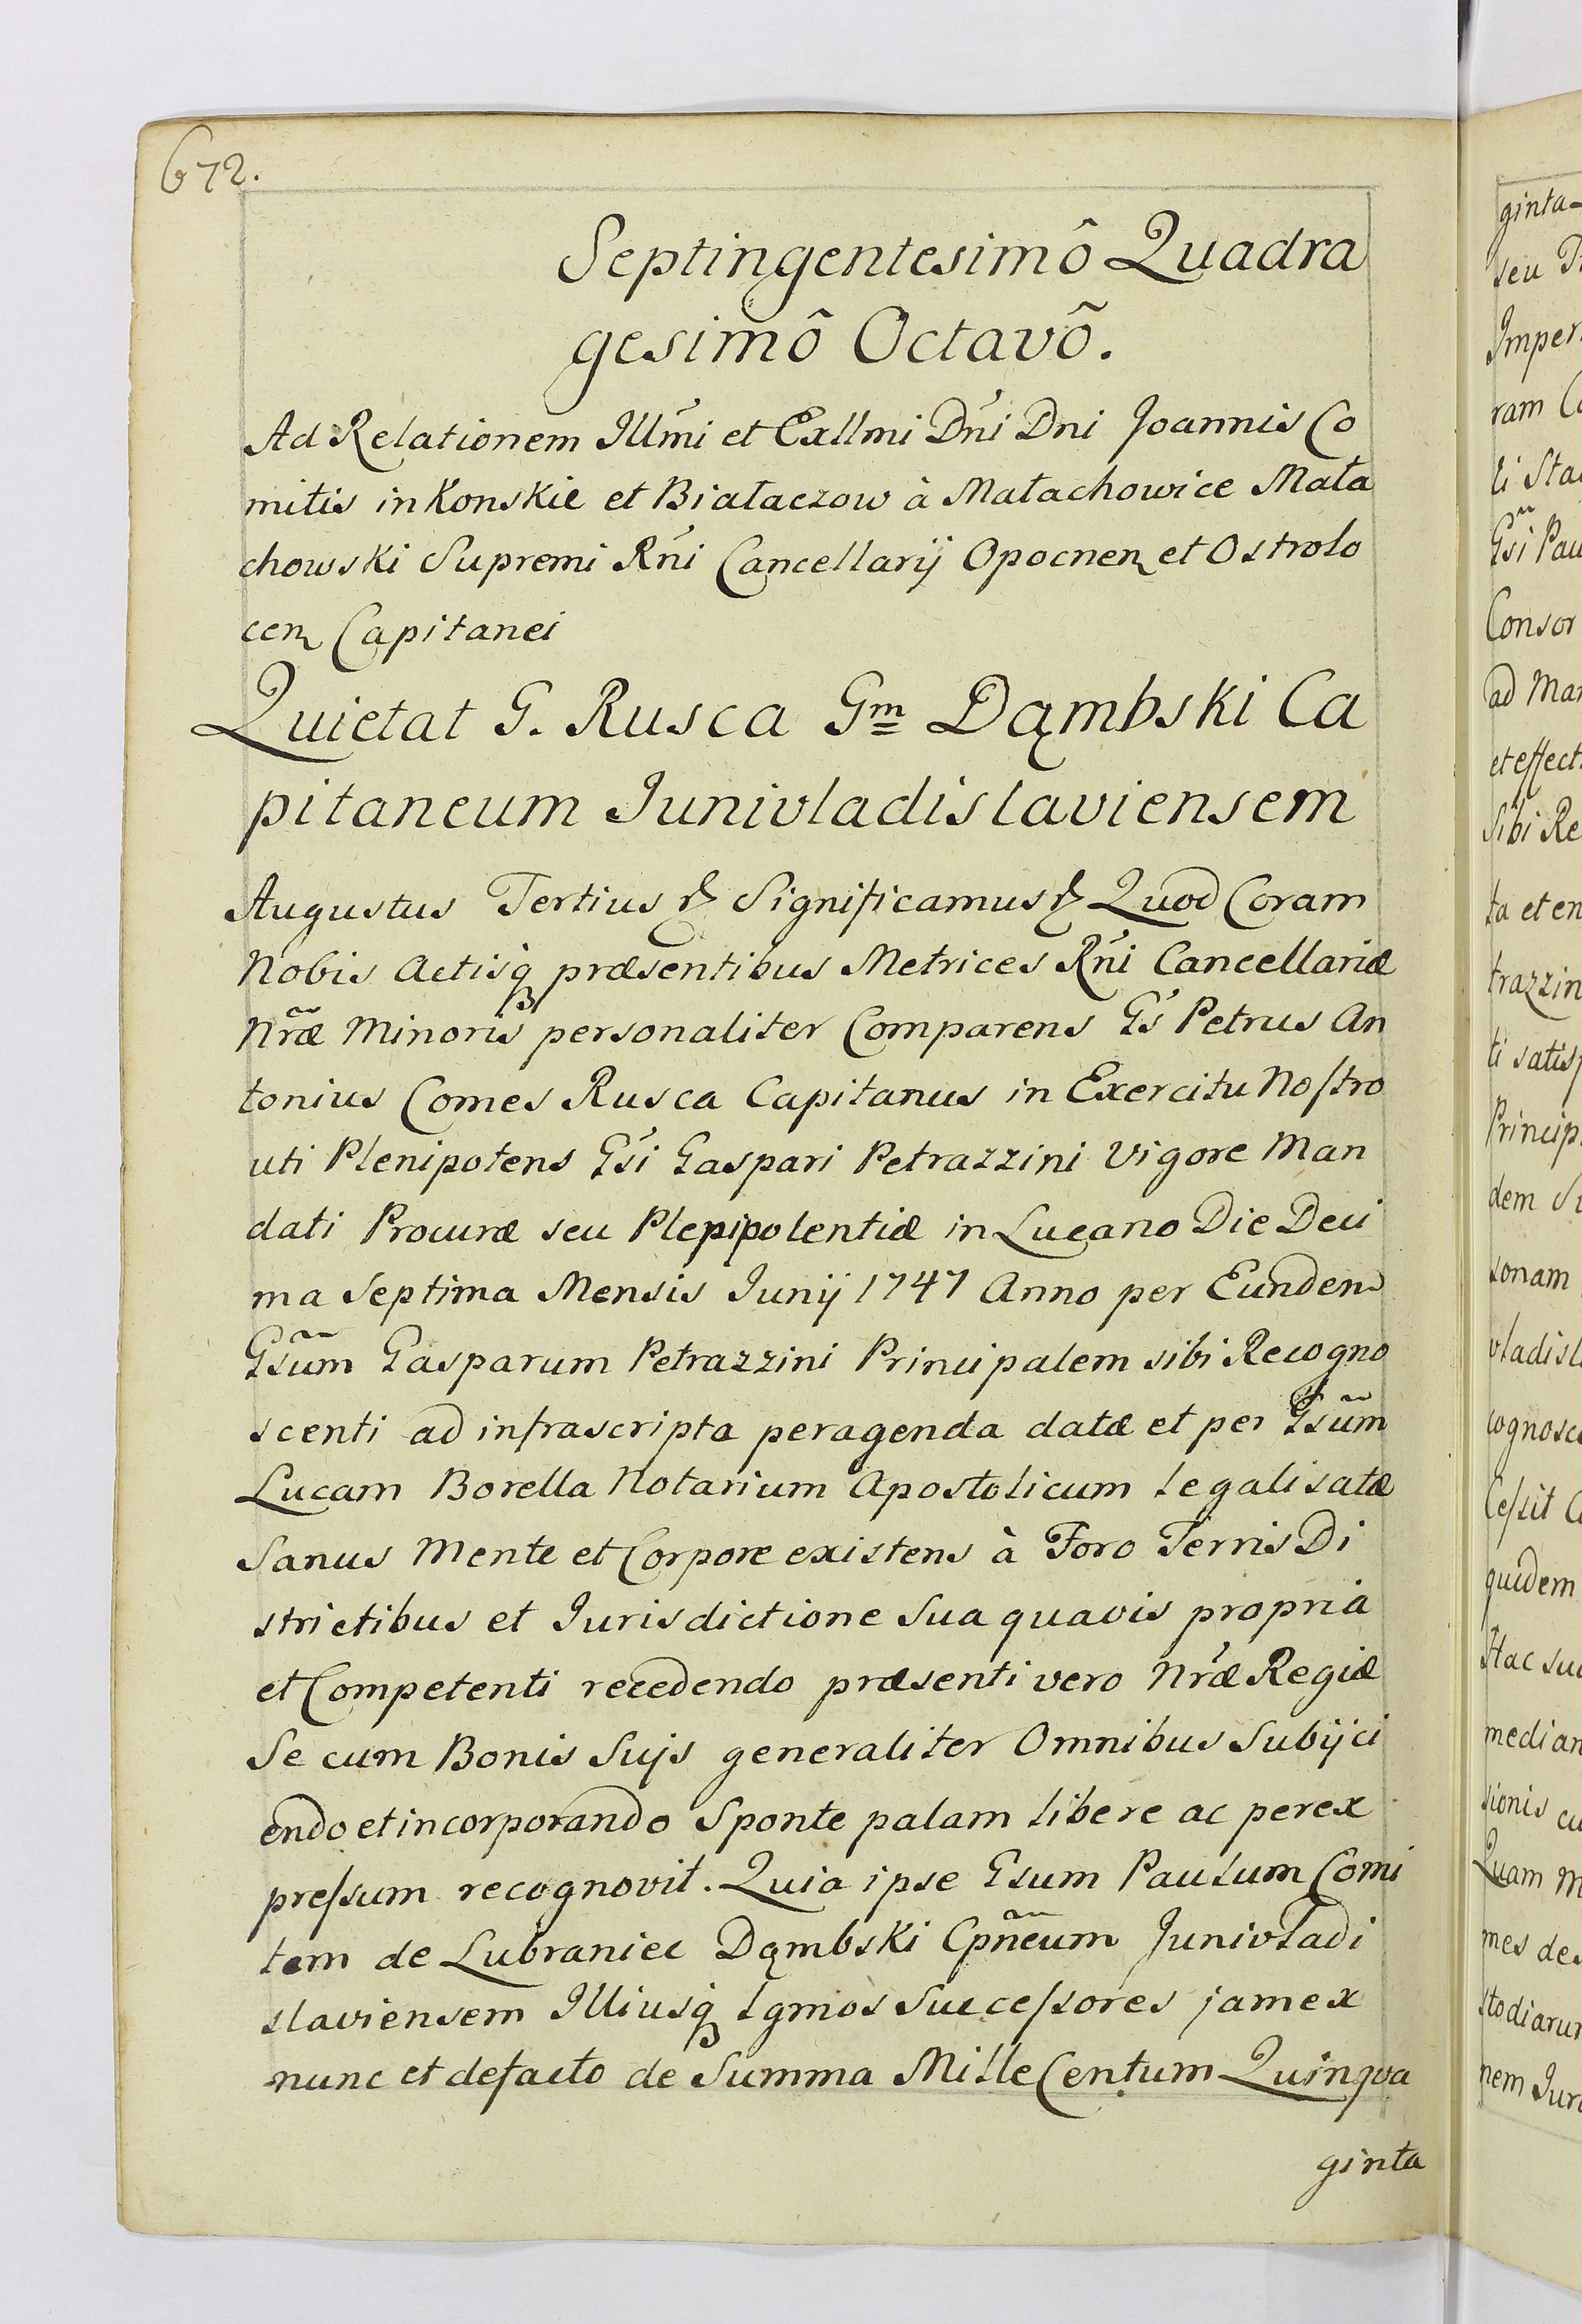 672.
Septingentesimô Quadra
gesimô Octavô.
Ad Relationem Illmi et Exllmi Dni Dni Joannis Co
mitis in Konskie et Białaczow à Małachowice Mała
chowski Supremi Rni Cancellarij Opocnen et Ostrolo
cen Capitanei
Quietat G. Rusca Gm Dąmbski Ca
pitaneum Junivladislaviensem
Augustus Tertius Significamus Quod Coram
Nobis Actisq præsentibus Metrices Rni Cancellariæ
Nræ Minoris personaliter Comparens Gs Petrus An
tonius Comes Rusca Capitanus in Exercitu Nostro
uti Plenipotens Gsi Gaspari Petrazzini Vigore Man
dati Procuræ seu Plepipolentiæ in Lucano Die Deci
ma Septima Mensis Junij 1747 Anno per Eundem
Gsum Gasparum Petrazzini Principalem sibi Recogno
scenti ad infrascripta peragenda datæ et per Gsum
Lucam Borella Notarium Apostolicum legalisatæ
Sanus Mente et Corpore existens à Foro Terris Di
strictibus et Jurisdictione Sua quavis propriâ
et Competenti recedendo præsenti vero Nræ Regiæ
Se cum Bonis Suijs generaliter Omnibus Subijci
endo et incorporando Sponte palam libere ac perex
pressum recognovit. Quia ipse Gsum Paulum Comi
tem de Lubraniec Dąmbski Cpneum Junivladi
slaviensem Illiusq lgmos Successores jam ex
nunc et defacto de Summa Mille Centum Quinqva
ginta
ginta
seu
Imper
ram
li Sta
Gsi Pau
Consor
ad Man
et effect
Sibi Re
ta et en
trazzin
ti satis
Princip
dem
sonam
vladisl
cognosc
Cessit
quidem
Hac su
median
sionis cu
Quam
mes de
stodiarum
nem Juri